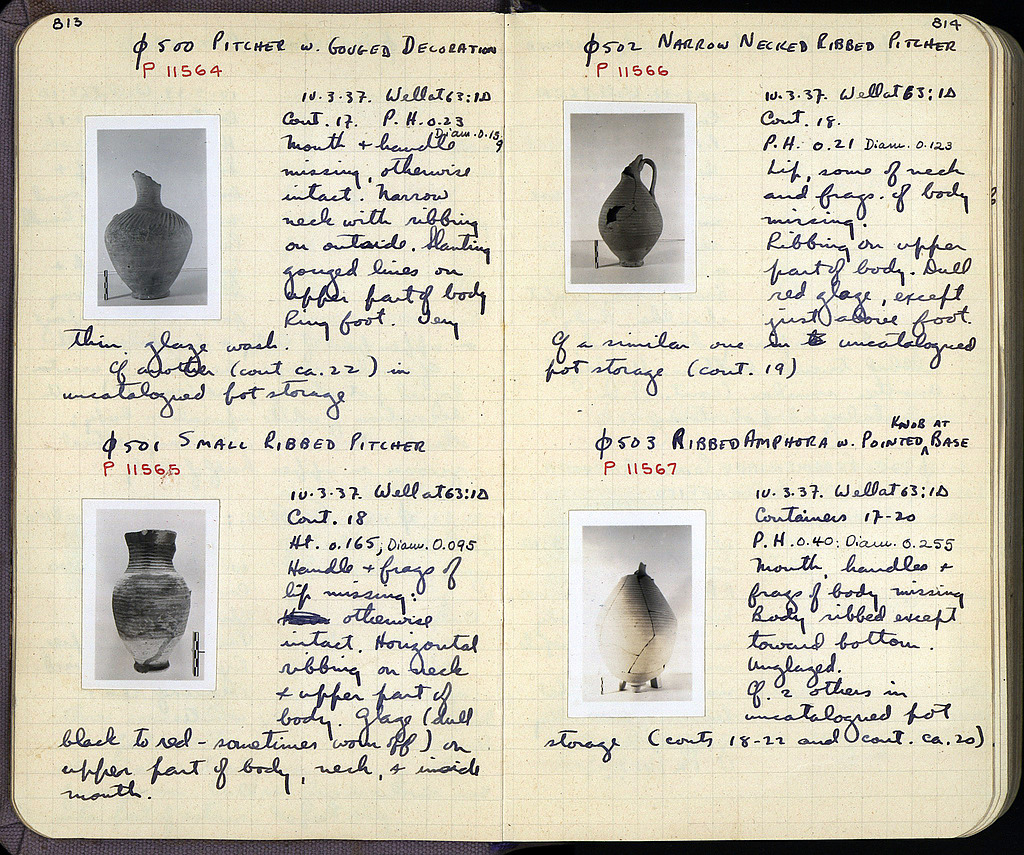 813
φ 500 PITCHER W. GOUGED DECORATION
P 11564
10.3.37. Well at 63:1Δ
Cont. 17. P.H. 0.23
Diam. 0.159
Mouth + handle
missing, otherwise
intact. Narrow
neck with ribbing
on outside. Slanting
gouged lines on
upper part of body
Ring foot. Very
thin glaze wash.
Cf another (cont ca. 22) in
uncatalogued pot storage
φ501 SMALL RIBBED PITCHER
P 11565
10.3.37. Well at 63:1Δ
Cont. 18
Ht. 0.165; Diam. 0.095
Handle + frags of
lip missing:
otherwise
intact. Horizontal
ribbing on neck
+ upper part of
body. Glaze (dull
black to red - sometimes worn off) on
upper part of body, neck, + inside
mouth.
814
φ502 NARROW NECKED RIBBED PITCHER
P 11566
10.3.37. Well at 63:1Δ
Cont. 18.
P.H. 0.21 Diam. 0.123
Lip, some of neck
and frags. of body
missing.
Ribbing on upper
part of body. Dull
red glaze, except
just above foot.
Cf a similar one in uncatalogued
pot storage (cont. 19)
φ503 RIBBED AMPHORA W. POINTED KNOB AT BASE
P 11567
10.3.37. Well at 63:1Δ
Containers 17-20
P.H. 0.40; Diam. 0.255
Mouth, handles +
frags of body missing
Body ribbed except
toward bottom.
Unglazed.
Cf. 2 others in
uncatalogued pot
storage (conts 18-22 and cont. ca. 20)